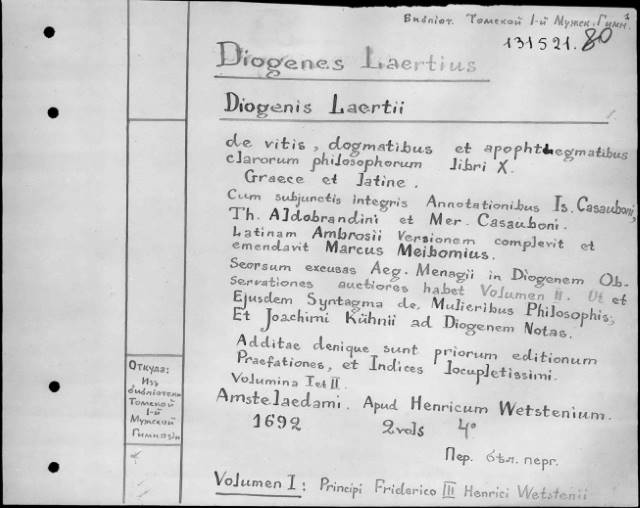 Библіот. Томской 1-й Мужск. Гимн.
131521. 80
Diogenes Laertius
Diogenis Laertii
de vitis, dogmatibus et apophthegmatibus
clarorum philosophorum libri X.
Graece et latine.
Cum subjunctis integris Annotationibus Is. Casauboni,
Th. Aldobrandini et Mer. Casauboni.
Latinam Ambrosii Versionem complevit et
emendavit Marcus Meibomius.
Seorsum excusas Aeg. Menagii in Diogenem Ob-
servationes auctiores habet Volumen II. Ut et
Ejusdem Syntagma de Mulieribus Philosophis;
Et Joachimi Kühnii ad Diogenem Notas.
Additae denique sunt priorum editionum
Praefationes, et Indices locupletissimi.
Volumina I et II.
Amstelaedami. Apud Henricum Wetstenium.
1692 2 vols 4°
Пер. бѣл. перг.
Откуда:
Изъ
библіотеки
Томской
1-й
Мужской
Гимназіи
Volumen I: Principi Friderico III Henrici Wetstenii